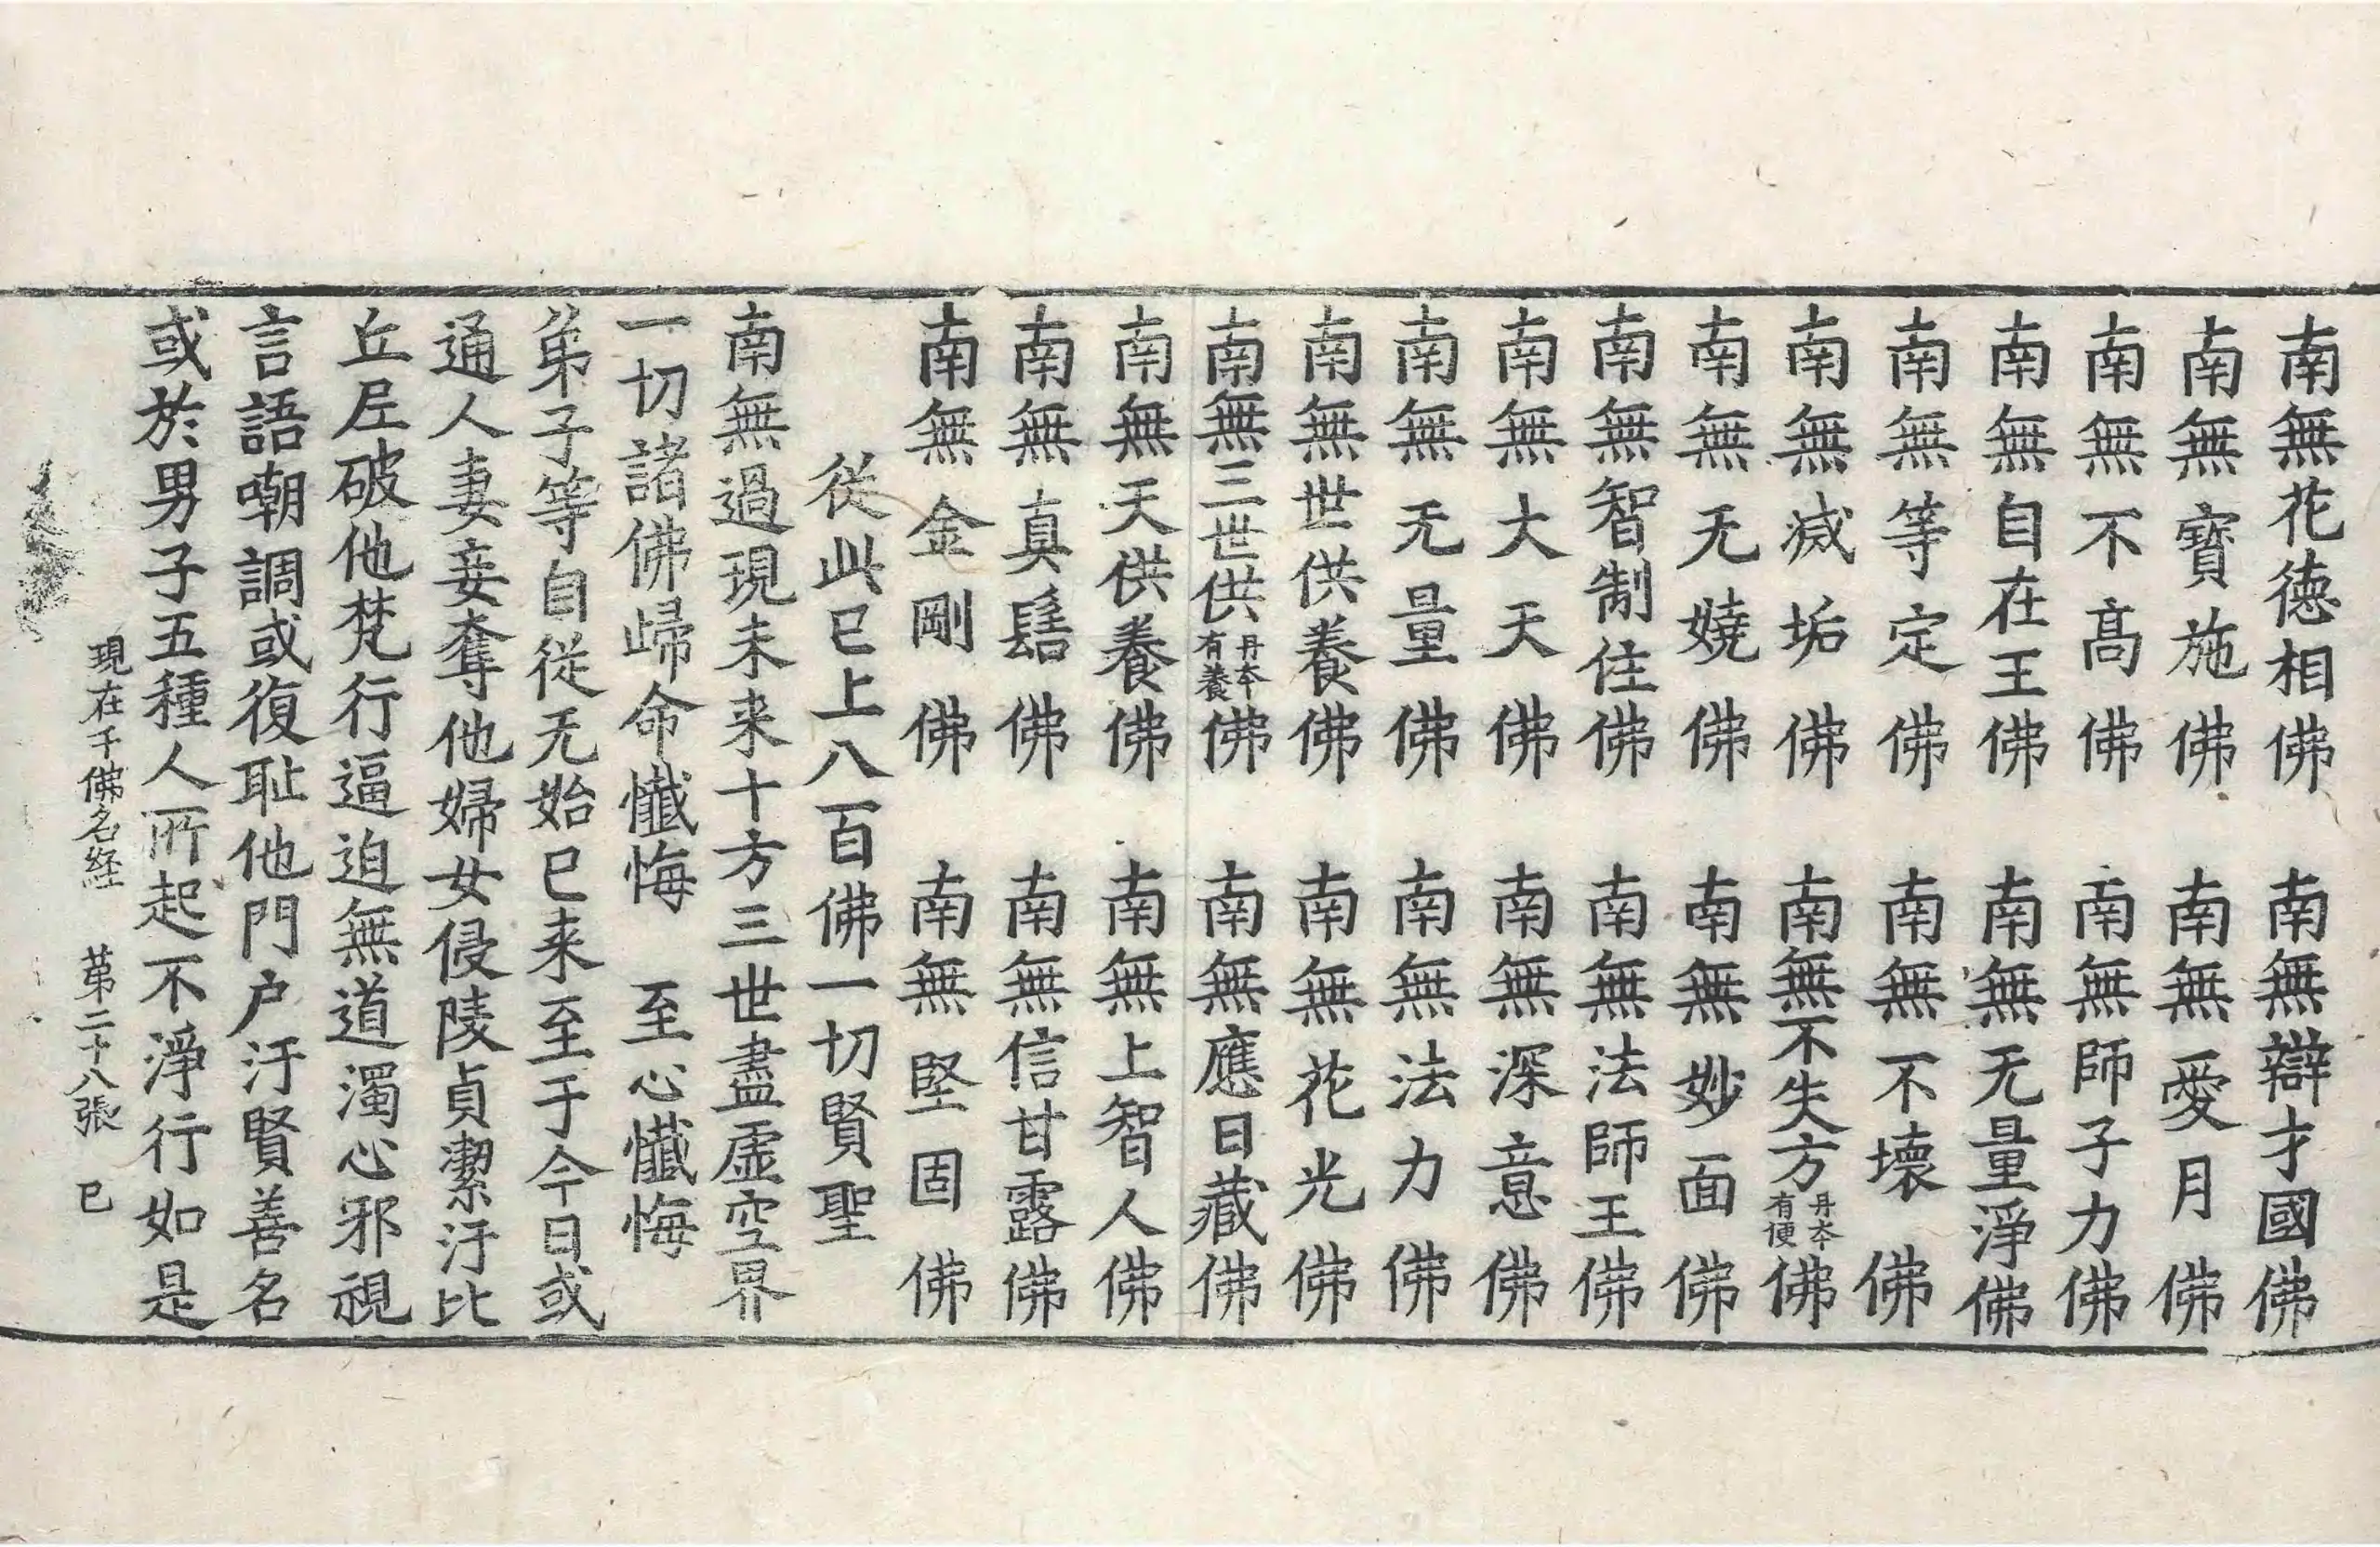 南無花德相佛　南無辯才國佛
南無寶施佛　南無愛月佛
南無不髙佛　南無師子力佛
南無自在王佛　南無无量淨佛
南無等定佛　南無不壞佛
南無滅垢佛　南無不失方丹本有便佛
南無无嬈佛　南無妙面佛
南無智制住佛　南無法師王佛
南無大天佛　南無深意佛
南無无量佛　南無法力佛
南無世供養佛　南無花光佛
南無三世供丹本有養佛　南無應日藏佛
南無天供養佛　南無上智人佛
南無真髻佛　南無信甘露佛
南無金剛佛　南無堅固佛
從此已上八百佛一切賢聖
南無過現未来十方三世盡虛空界
一切諸佛歸命懺悔　至心懺悔
弟子等自從无始已来至于今日或
通人妻妾奪他婦女侵陵貞潔汙比
丘尼破他梵行逼迫無道濁心邪視
言語嘲調或復耻他門户汙賢善名
或於男子五種人所起不淨行如是
現在千佛名経　第二十八張　已